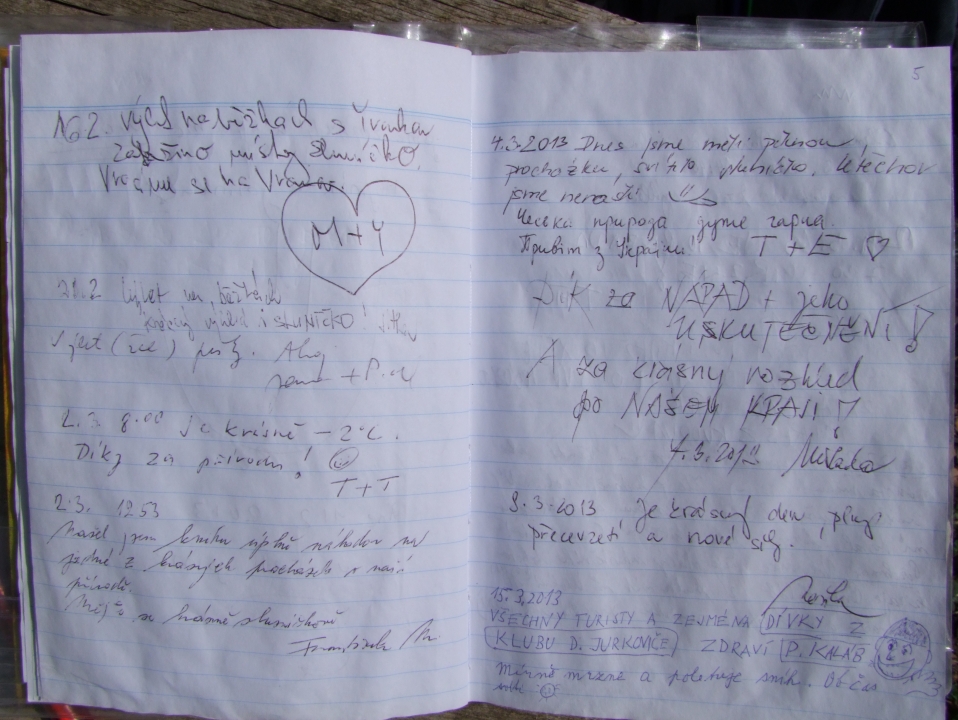 16.2. Výlet na běžkách s Ivankou
místy sluníčko.
Vracíme se na Vranov.
M + Y
21.2 Výlet na běžkách
krásný výhled i SLUNÍČKO!
výlet pěšky. Ahoj
+ P.
2.3 8.00 je krásně -2°C.
Díky za přírodu!
T + T
2.3. 1253
Našel jsem knihu úplně náhodou na
jedné z krásných procházek v naší
přírodě.
Mějte se krásně sluníčkově
Františka M.
5
4.3.2013 Dnes jsme měli pěknou
procházku, svítilo sluníčko. Útěchov
jsme nenašli
Чеська природа дуже гарна.
Привіт з України! T + E
DÍK za NÁPAD + jeho
USKUTEČNĚNÍ!
A za krásný rozhled
po NAŠEM KRAJI!
4.3.2013
9.3.2013 je krásný den, plný
překvapení a nové síly.
15.3.2013
VŠECHNY TURISTY A ZEJMÉNA DÍVKY Z
KLUBU D. JURKOVIČE ZDRAVÍ P. KALÁB
Mírně mrzne a poletuje sníh. Občas